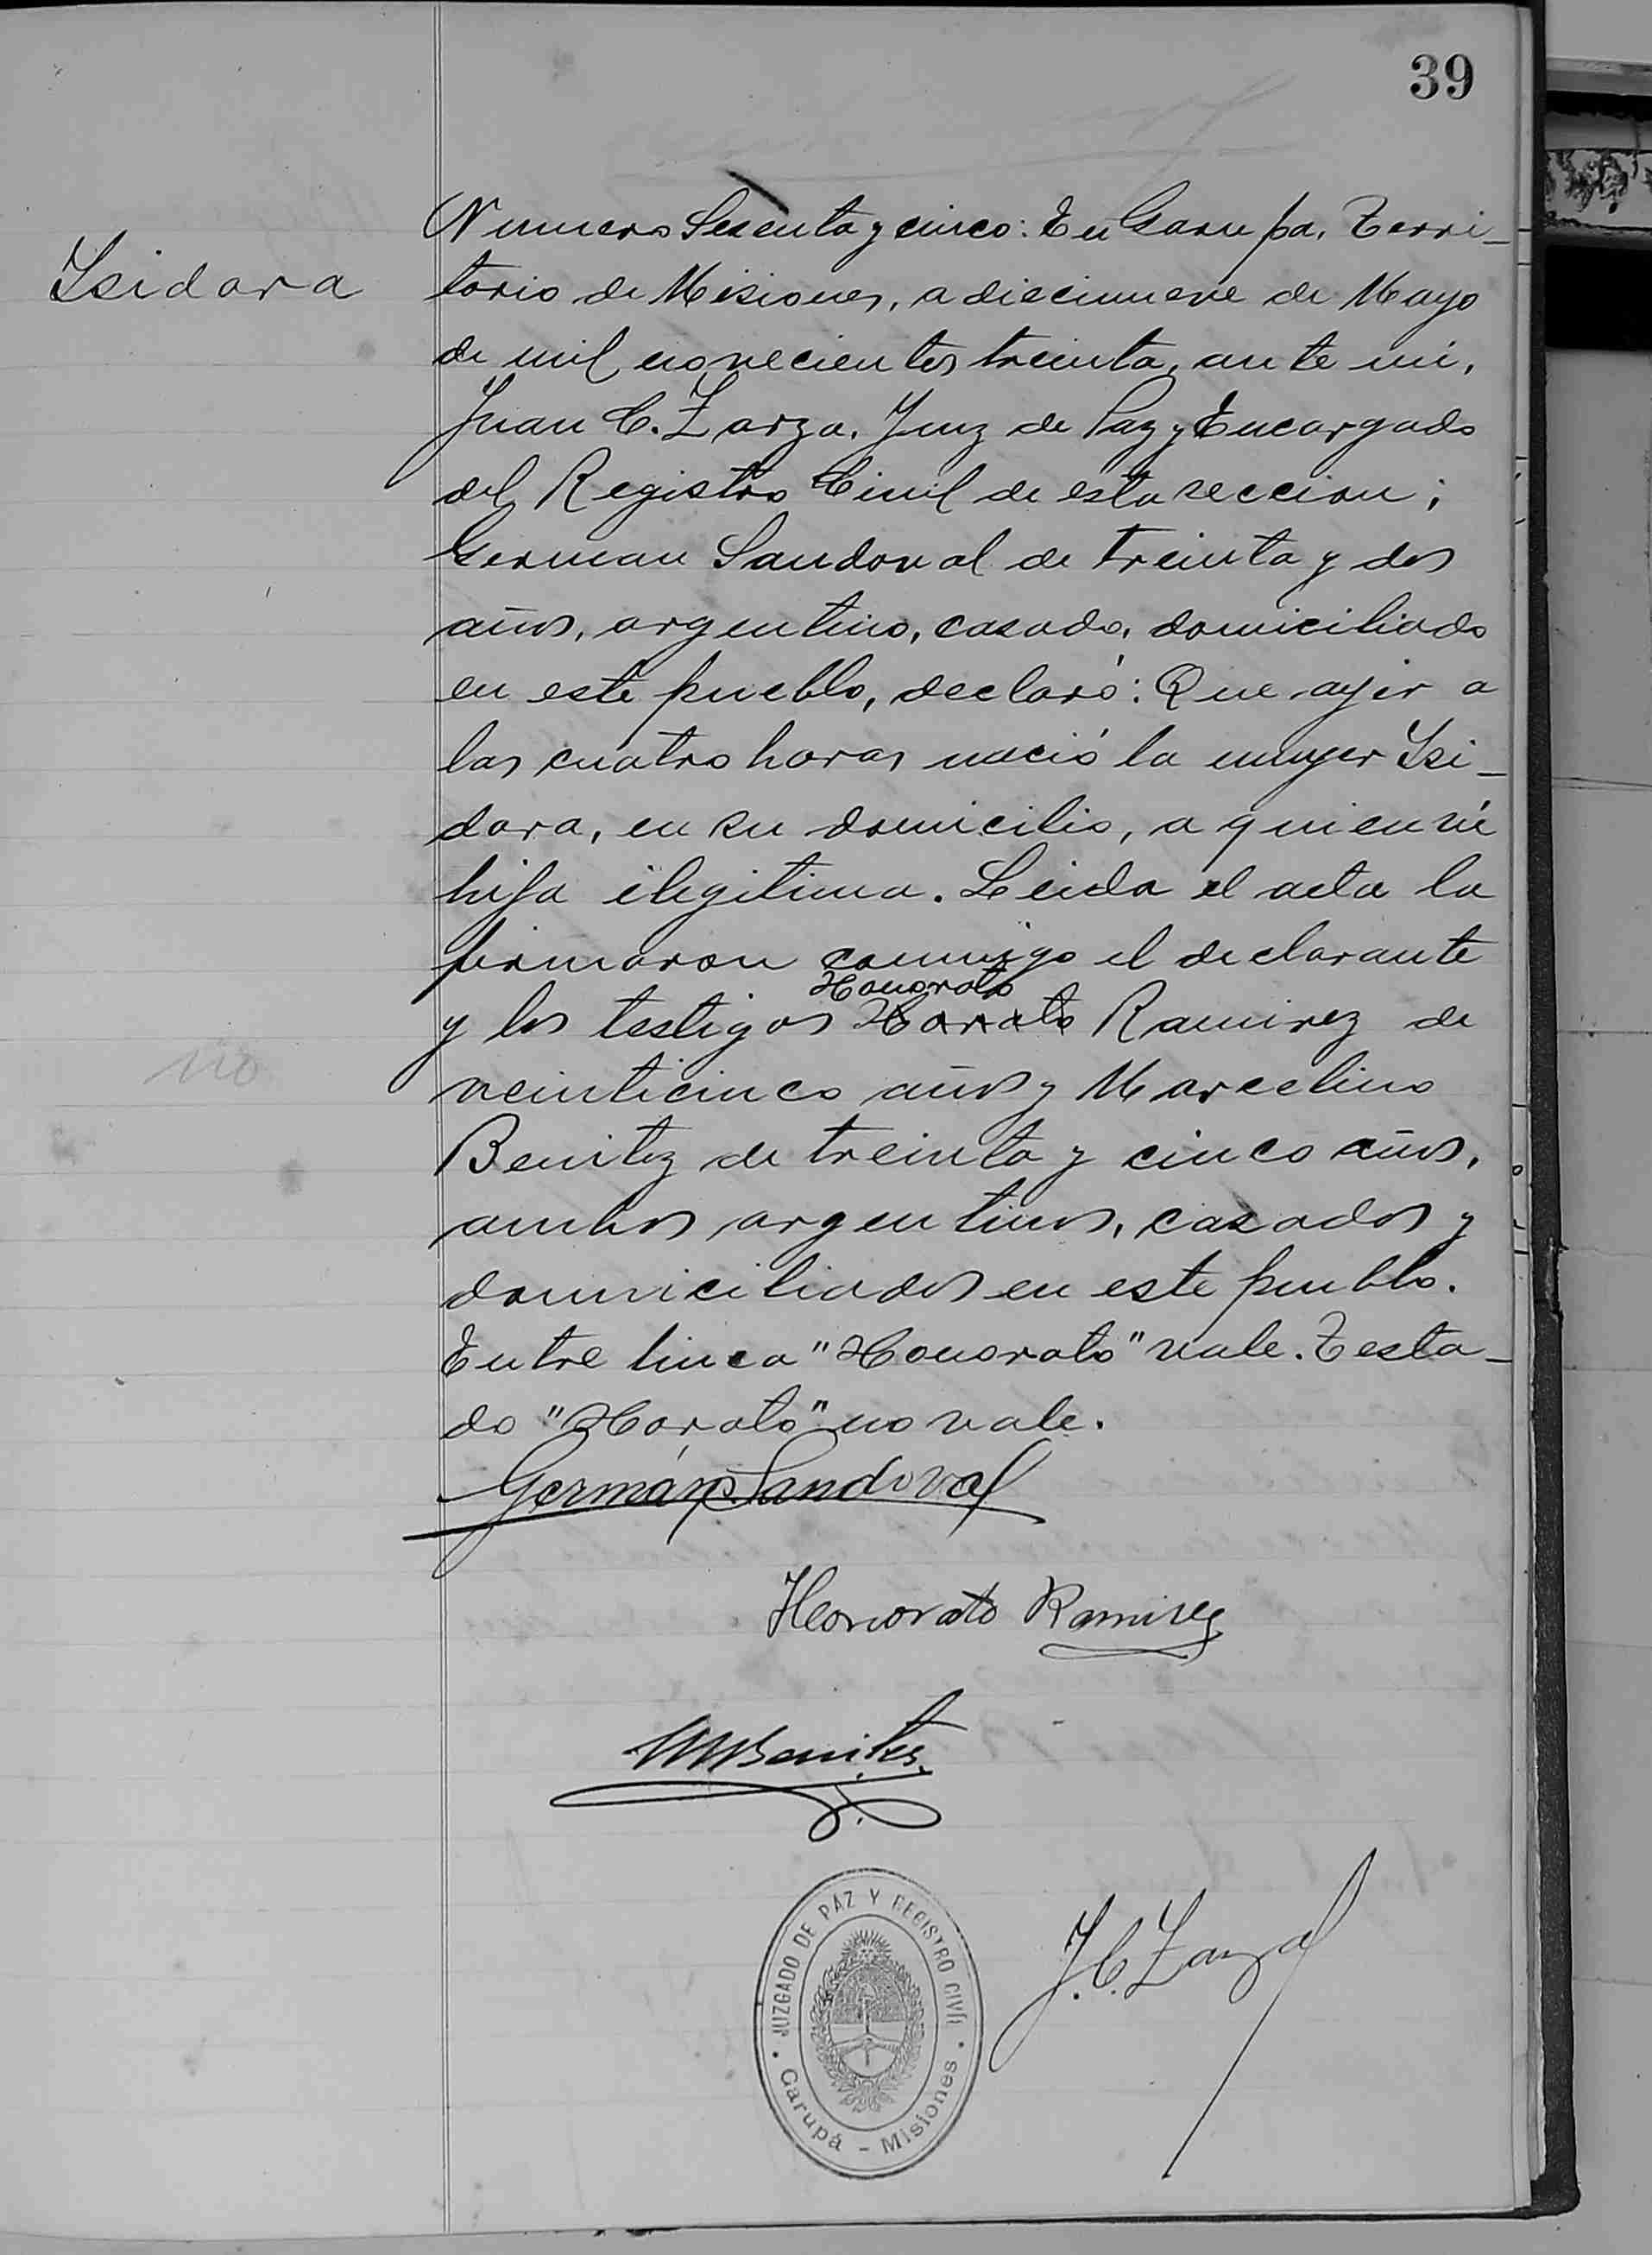 39
Isidora
Numero Sesenta y cinco: En Garupa, Terri-
torio de Misiones, a diecinueve de Mayo
de mil novecientos treinta, ante mi,
Juan C. Zarza, Juez de Paz y Encargado
del Registro Civil de esta seccion;
German Sandoval de treinta y dos
años, argentino, casado, domiciliado
en este pueblo, declaró: Que ayer a
las cuatro horas nació la mujer Isi-
dora, en su domicilio, a quien vi
hija ilegitima. Leida el acta la
firmaron conmigo el declarante
Honorato
y los testigos Horato Ramirez de
veinticinco años y Marcelino
no
Benitez de treinta y cinco años,
ambos argentinos, casados y
domiciliados en este pueblo.
Entre linea "Honorato" vale. Testa-
do "Horato" no vale.
Germán Sandoval
Honorato Ramirez
M Benites
J. C. Zarza
JUZGADO DE PAZ Y REGISTRO CIVIL
Garupá - Misiones